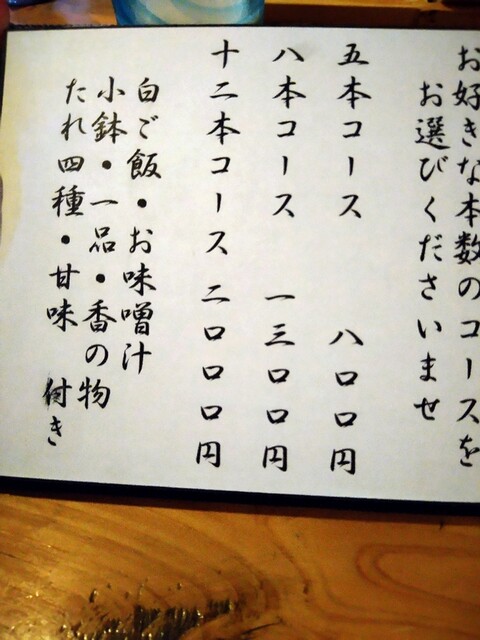 お好きな本数のコースを
お選びくださいませ
五本コース 八〇〇円
八本コース 一三〇〇円
十二本コース 二〇〇〇円
白ご飯・お味噌汁
小鉢・一品・香の物
たれ四種・甘味 付き